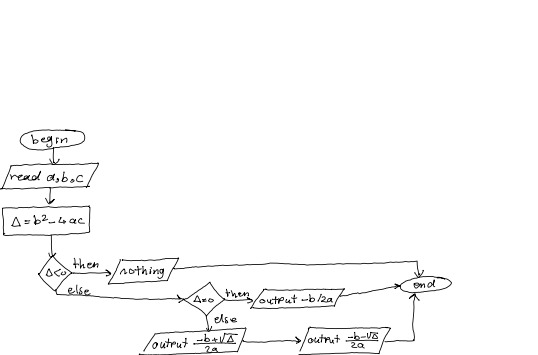 begin
read a,b,c
Δ=b²-4ac
Δ<0
then
nothing
end
else
Δ=0
then
output -b/2a
else
output (-b+√Δ)/2a
output (-b-√Δ)/2a